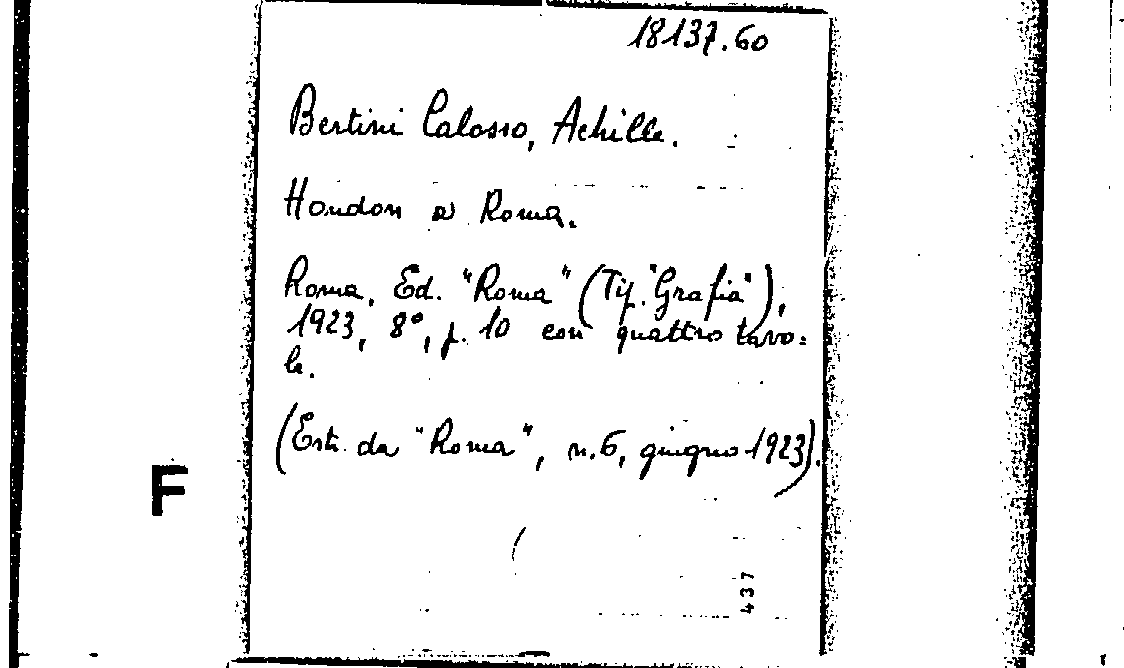 18137.60
Bertini Calosso, Achille.
Houdon a Roma.
Roma, Ed. "Roma" (Tip. "Grafia"),
1923, 8°, p. 10 con quattro tavo=
le.
(Estr. da "Roma", n. 6, giugno 1923).
F
437